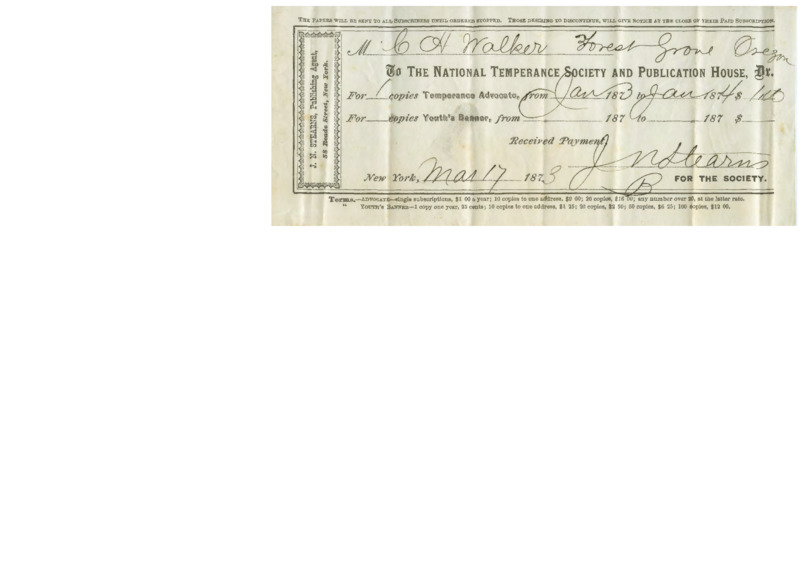 THE PAPERS WILL BE SENT TO ALL SUBSCRIBERS UNTIL ORDERED STOPPED. THOSE DESIRING TO DISCONTINUE, WILL GIVE NOTICE AT THE CLOSE OF THEIR PAID SUBSCRIPTION.
J. N. STEARNS, Publishing Agent,
58 Reade Street, New York.
M C H Walker Forest Grove Oregon
To THE NATIONAL TEMPERANCE SOCIETY AND PUBLICATION HOUSE, Dr.
For 1 copies Temperance Advocate, from Jan 1873 to Jan 1874 $ 1
For copies Youth's Banner, from 187 to 187 $
Received Payment,
J N Stearns
New York, Mar 17 1873 FOR THE SOCIETY.
B
Terms.—ADVOCATE—single subscriptions, $1 00 a year; 10 copies to one address, $9 00; 20 copies, $16 00; any number over 20, at the latter rate.
" YOUTH'S BANNER—1 copy one year, 25 cents; 10 copies to one address, $1 25; 20 copies, $2 50; 50 copies, $6 25; 100 copies, $12 00.